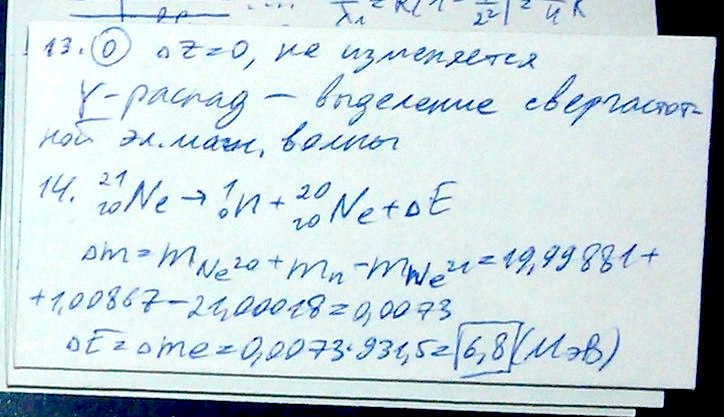 13. 0 ΔZ=0, не изменяется
γ-распад — выделение сверхчастот-
ной эл.магн. волны
14. ²¹₁₀Ne → ¹₀n + ²⁰₁₀Ne + ΔE
Δm = m_Ne²⁰ + m_n − m_Ne²¹ = 19,99881 +
+1,00867 − 21,00018 = 0,0073
ΔE = Δmc = 0,0073·931,5 = 6,8 (МэВ)